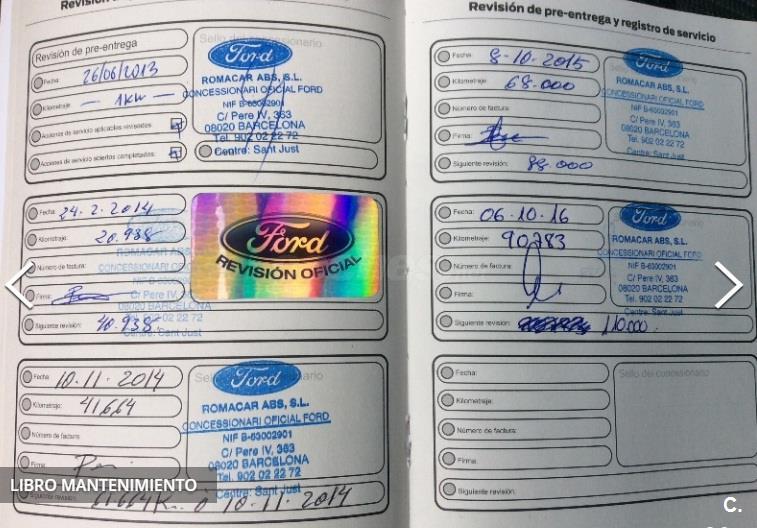 Revisión de pre-entrega y registro de servicio
Revisión de pre-entrega
Sello del concesionario
Fecha: 26/06/2013
Kilometraje: - 1KM -
Acciones de servicio aplicables revisadas
Acciones de servicio abiertos completadas
Ford
ROMACAR ABS, S.L.
CONCESSIONARI OFICIAL FORD
NIF B-63002901
C/ Pere IV, 363
08020 BARCELONA
Tel. 902 02 22 72
Centre: Sant Just
Fecha: 24.2.2014
Kilometraje: 20.938
Número de factura:
Firma:
Siguiente revisión: 40.938
ROMACAR ABS
CONCESSIONARI
NIF B-63
C/ Pere IV,
08020 BARCELONA
02 22 72
Centre: Sant Just
Ford
REVISIÓN OFICIAL
Fecha: 10.11.2014
Kilometraje: 41664
Número de factura:
Firma
Siguiente revisión: 10.11.2014
Ford
ROMACAR ABS, S.L.
CONCESSIONARI OFICIAL FORD
NIF B-63002901
C/ Pere IV, 363
08020 BARCELONA
Tel. 902 02 22 72
Centre: Sant Just
LIBRO MANTENIMIENTO
Fecha: 8-10.2015
Kilometraje: 68.000
Número de factura:
Firma:
Siguiente revisión: 88.000
Ford
ROMACAR ABS, S.L.
CONCESSIONARI OFICIAL FORD
NIF B-63002901
C/ Pere IV, 363
08020 BARCELONA
Tel. 902 02 22 72
Centre: Sant Just
Fecha: 06.10.16
Kilometraje: 90,283
Número de factura:
Firma:
Siguiente revisión: 110.000
Ford
ROMACAR ABS, S.L.
CONCESSIONARI OFICIAL FORD
NIF B-63002901
C/ Pere IV, 363
08020 BARCELONA
Tel. 902 02 22 72
Centre: Sant Just
Fecha:
Kilometraje:
Número de factura:
Firma:
Siguiente revisión:
Sello del concesionario
C.